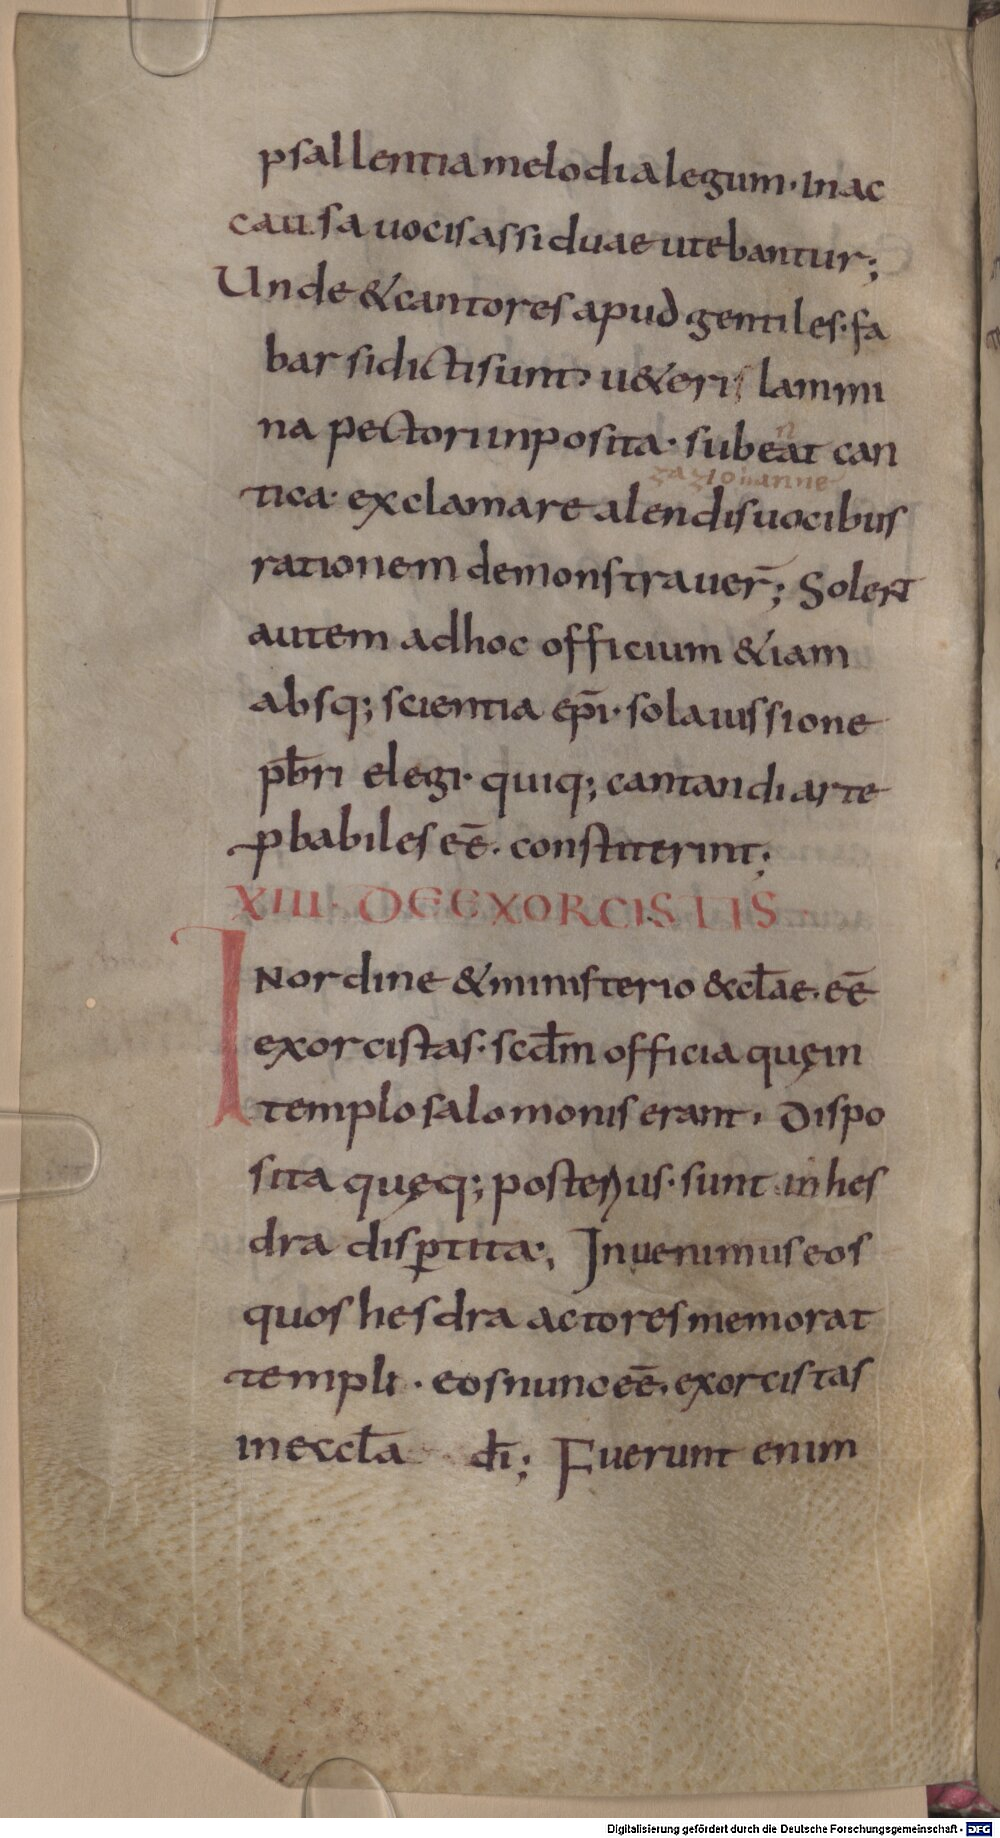 psallentia melodia legum· In ac
causa uocis assiduae utebantur;
Unde & cantores apud gentiles· fa
barsi dicti sunt· u&eris lammi
na pectori inposita· sub eat can
tica· exclamare alendis uocibus
rationem demonstrauer̄; Solent
autem ad hoc officium &iam
absq; scientia ep̄i· sola iussione
pb̄ri elegi· quiq; cantandi arte
ꝓbabiles eē· constiterint;
XIII· DE EXORCISTIS
IN ordine & ministerio &cl̄ae· eē
exorcistas· scd̄m officia quę in
templo salomonis erant· Dispo
sita quęq; posterius· sunt in hes
dra disꝑtita·, Inuenimus eos
quos hesdra actores memorat
templi· eos nunc eē· exorcistas
in eccl̄a dī; Fuerunt enim
Digitalisierung gefördert durch die Deutsche Forschungsgemeinschaft - DFG